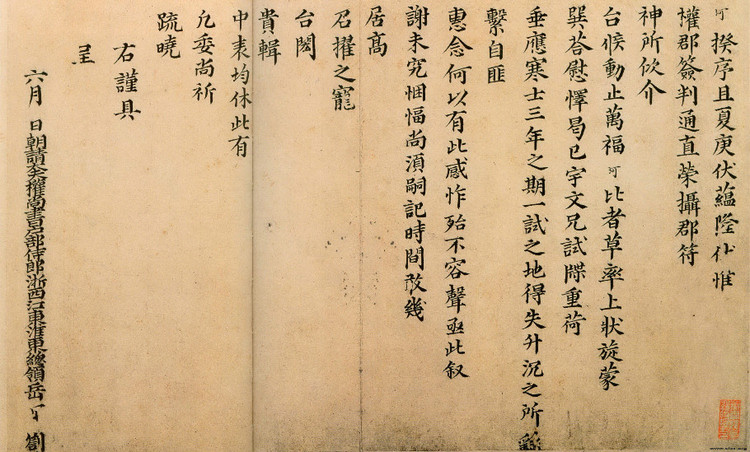 可揆序且夏庚伏蘊隆仆惟
權郡簽判通直榮攝郡符
神所佽介
台候動止萬福可比者草率上狀旋蒙
巽荅慰懌曷已宇文兄試牒重荷
垂應寒士三年之期一試之地得失升沉之所繇
繫自匪
惠念何以有此感怍殆不容聲亟此叙
謝未究悃愊尚湏嗣記時間攷幾
居髙
召擢之寵
台閎
貴輯
中表均休此有
凢委尚祈
䟽曉
右謹具
呈
六月 日朝請大夫權尚書戶部侍郎浙西江東淮東緫領岳可劄